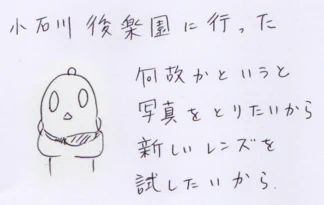 小石川後楽園に行った
何故かというと
写真をとりたいから
新しいレンズを
試したいから.